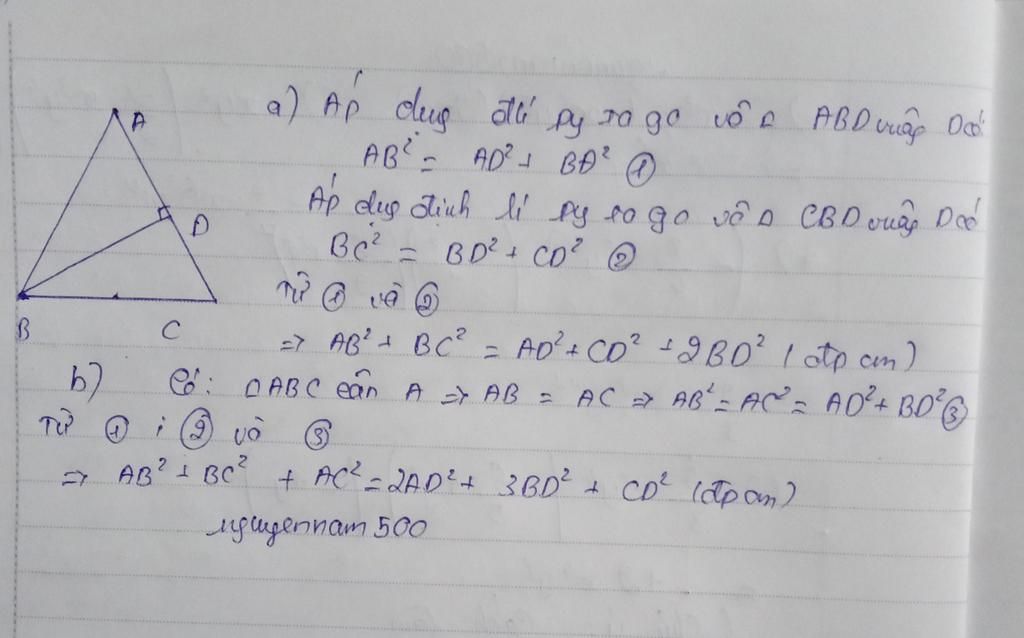 a) Áp dụng đlí py ta go vô Δ ABD vuông D có:
AB² = AD² + BD² ①
Áp dụng định lí py ta go vô Δ CBD vuông D có
BC² = BD² + CD² ②
Từ ① và ②
=> AB² + BC² = AD² + CD² + 2BD² (đpcm)
b) Có: Δ ABC cân A => AB = AC => AB² = AC² = AD² + BD² ③
Từ ① ; ② và ③
=> AB² + BC² + AC² = 2AD² + 3BD² + CD² (đpcm)
nguyennam500
A
D
B C